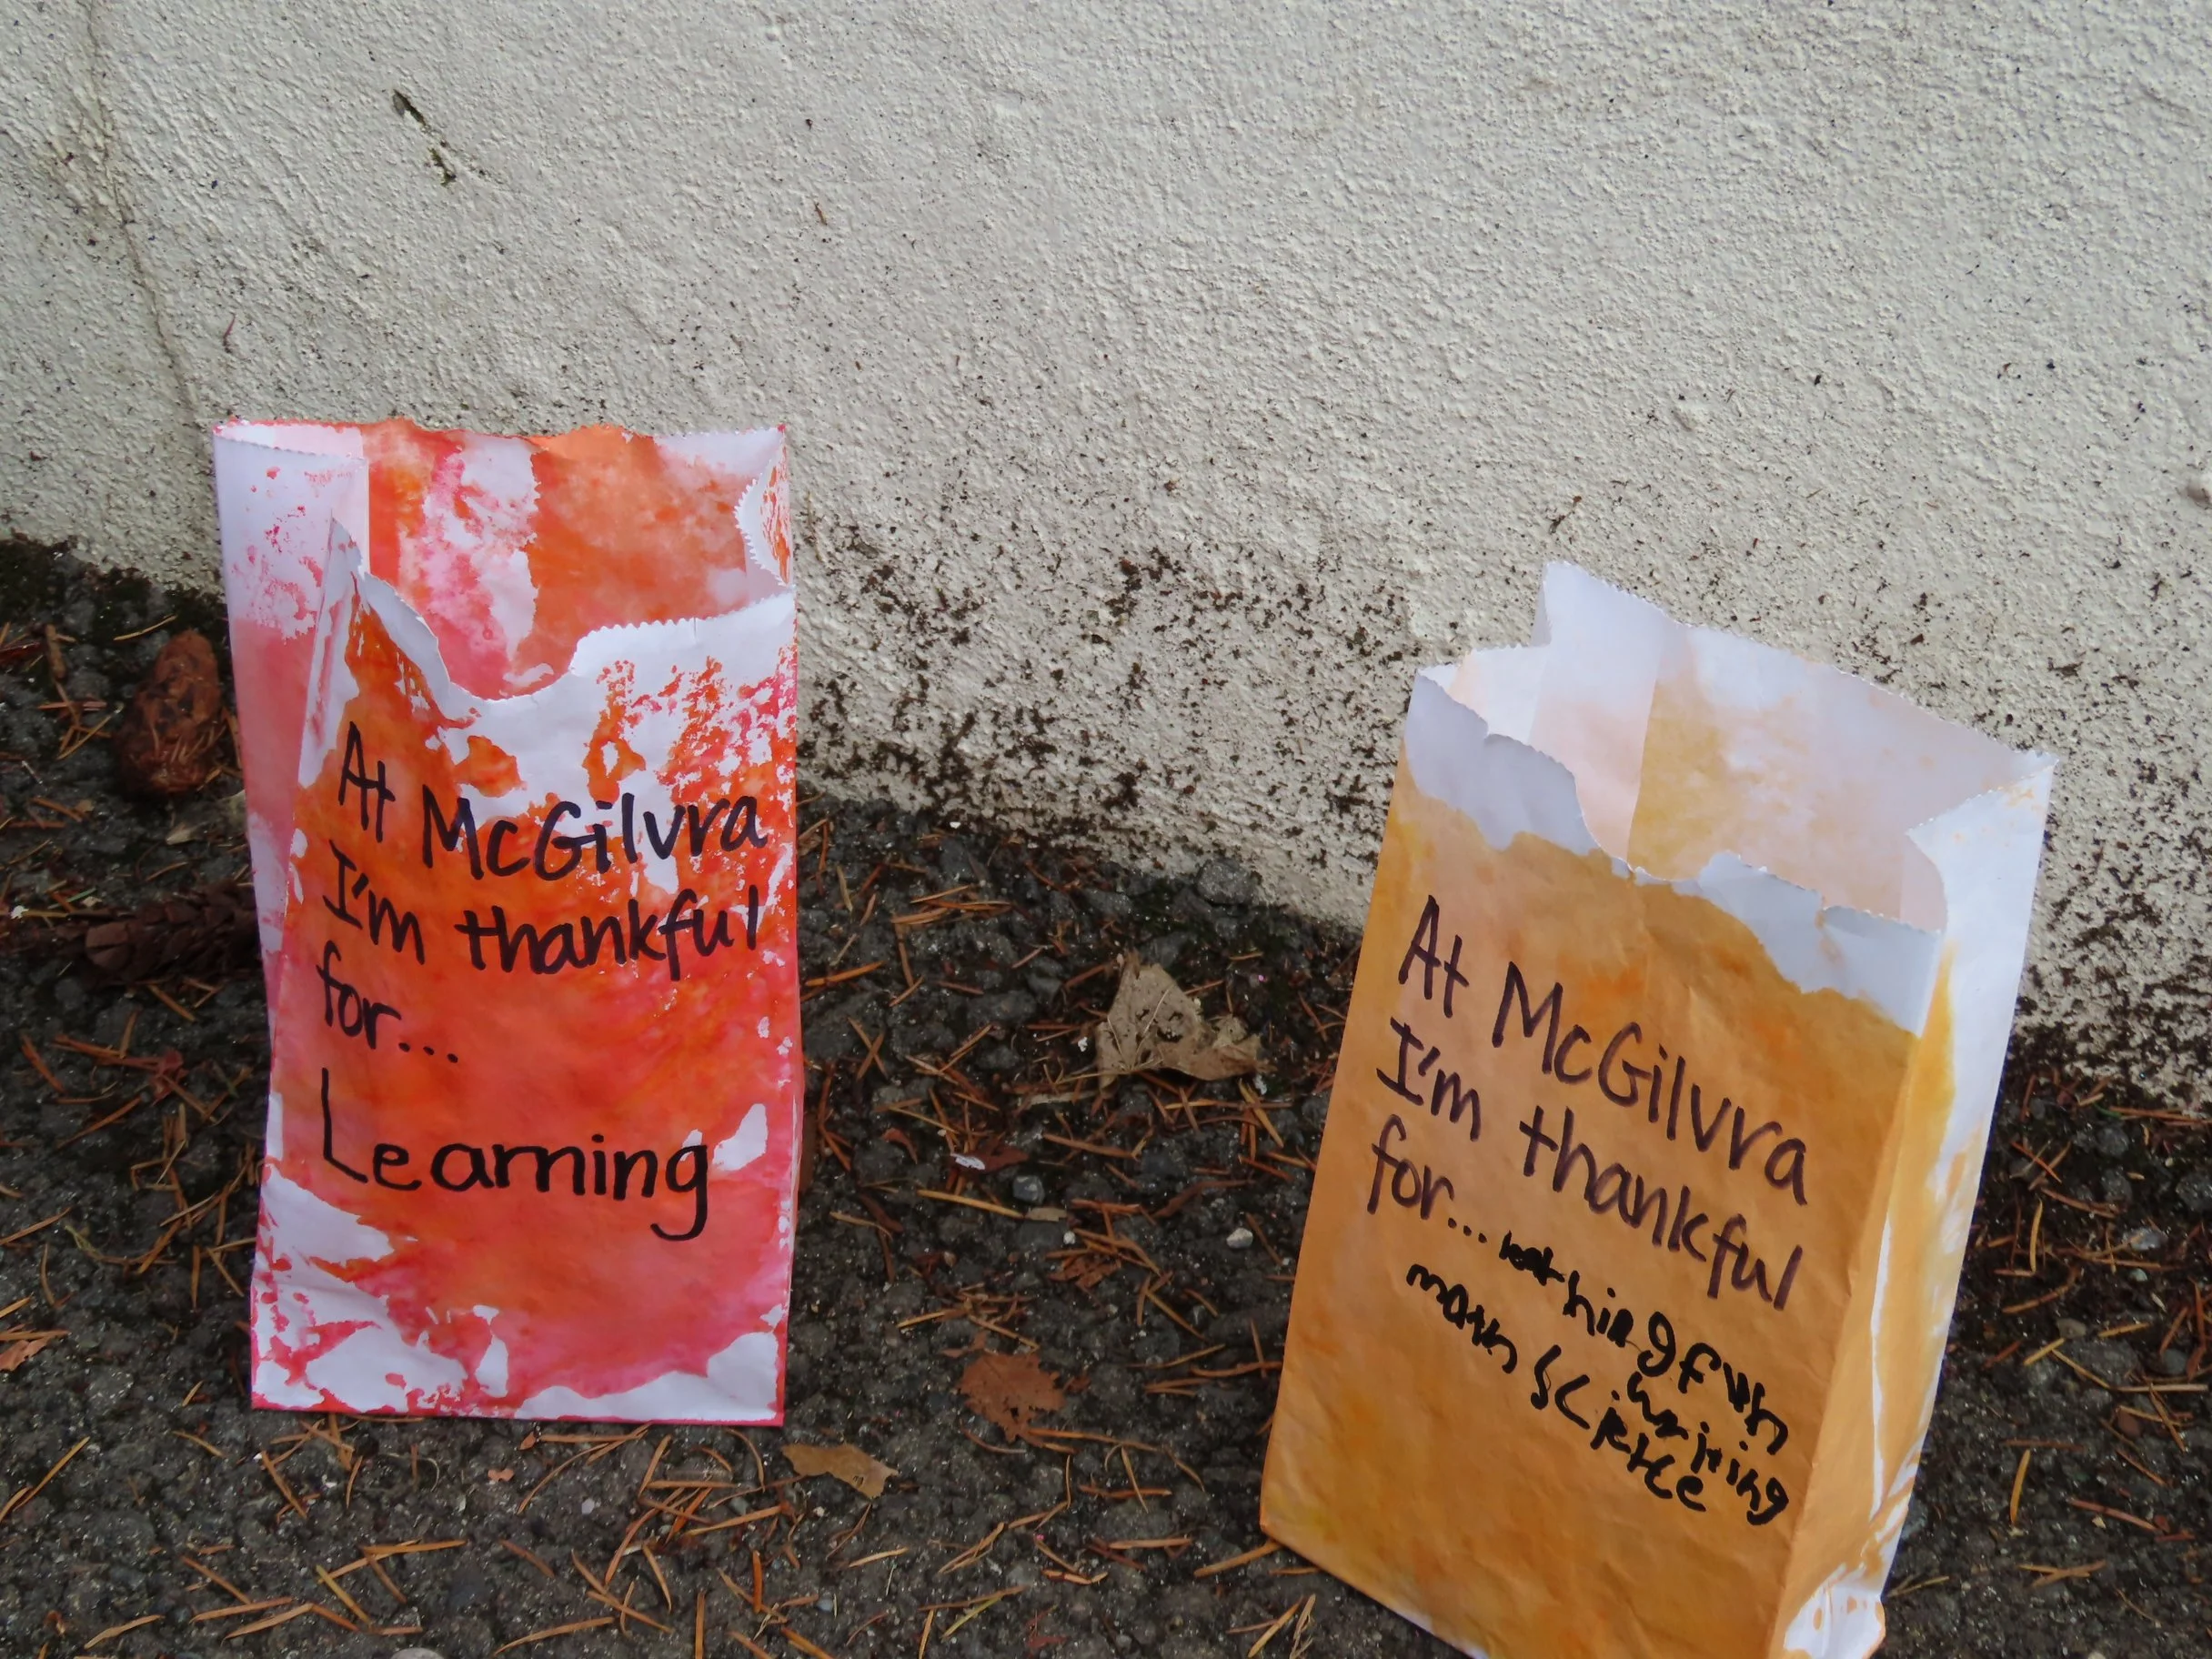 At McGilvra
I'm thankful
for...
Learning
At McGilvra
I'm thankful
for...
fun
math science